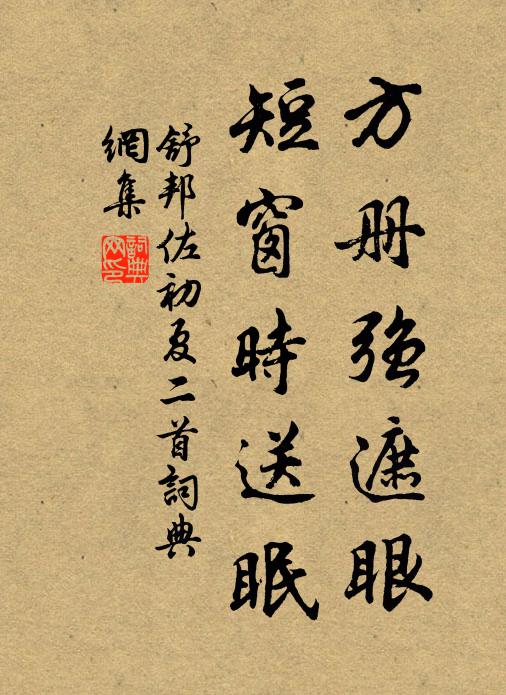 方册強遮眼
短窗時送眠
舒邦佐初夏二首詞典
網集
詞典
网印